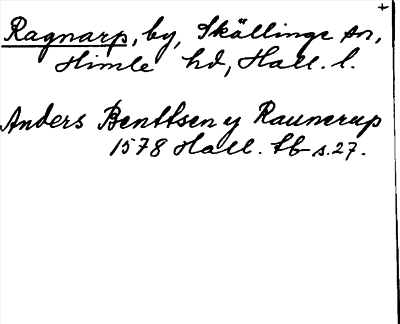 +
Ragnarp, by, Skällinge sn,
Himle hd, Hall. l.
Anders Benttsen y Raunerup
1578 Hall. tb s. 27.